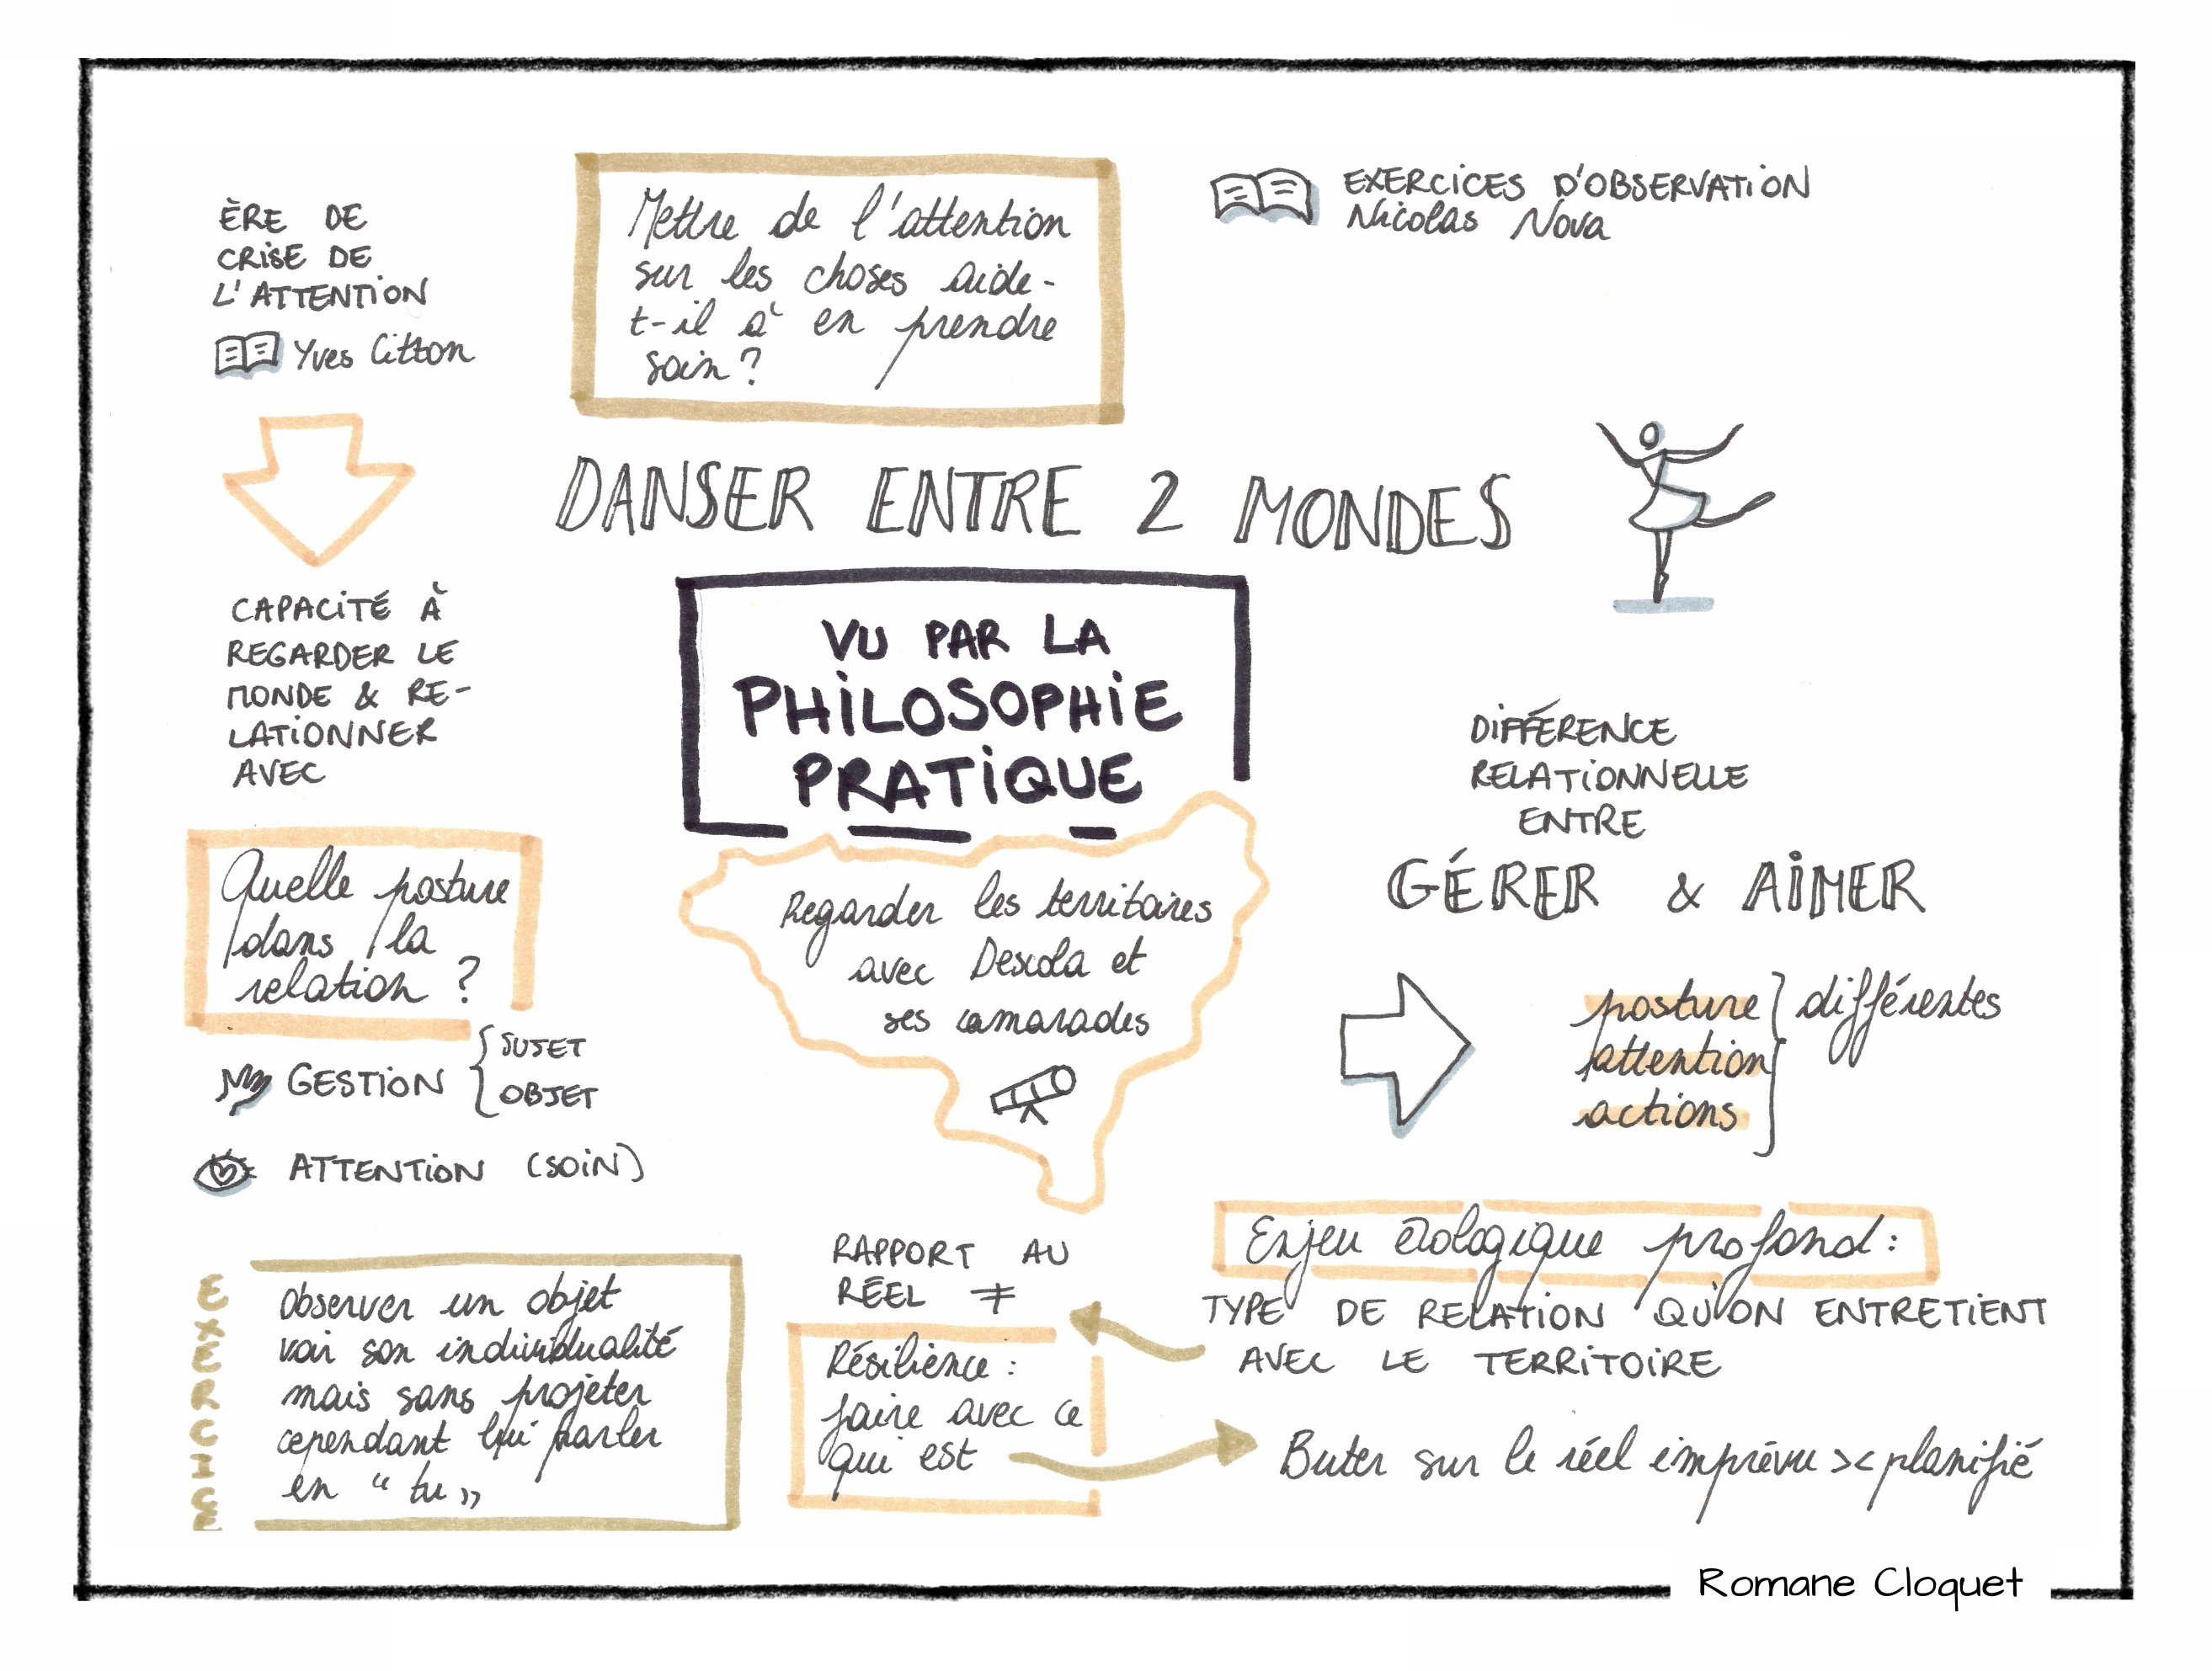 ÈRE DE
CRISE DE
L'ATTENTION
Yves Citton
Mettre de l'attention
sur les choses aide-
t-il à en prendre
soin ?
EXERCICES D'OBSERVATION
Nicolas Nova
DANSER ENTRE 2 MONDES
CAPACITÉ À
REGARDER LE
MONDE & RE-
LATIONNER
AVEC
VU PAR LA
PHILOSOPHIE
PRATIQUE
DIFFÉRENCE
RELATIONNELLE
ENTRE
GÉRER & AIMER
Quelle posture
dans la
relation ?
Regarder les territoires
avec Descola et
ses camarades
posture
attention
actions
différentes
GESTION
SUJET
OBJET
ATTENTION (SOIN)
EXERCICE
Observer un objet
voir son individualité
mais sans projeter
cependant lui parler
en “ tu ”
RAPPORT AU
RÉEL ≠
Résilience :
faire avec ce
qui est
Enjeu écologique profond :
TYPE DE RELATION QU'ON ENTRETIENT
AVEC LE TERRITOIRE
Buter sur le réel imprévu >< planifié
Romane Cloquet